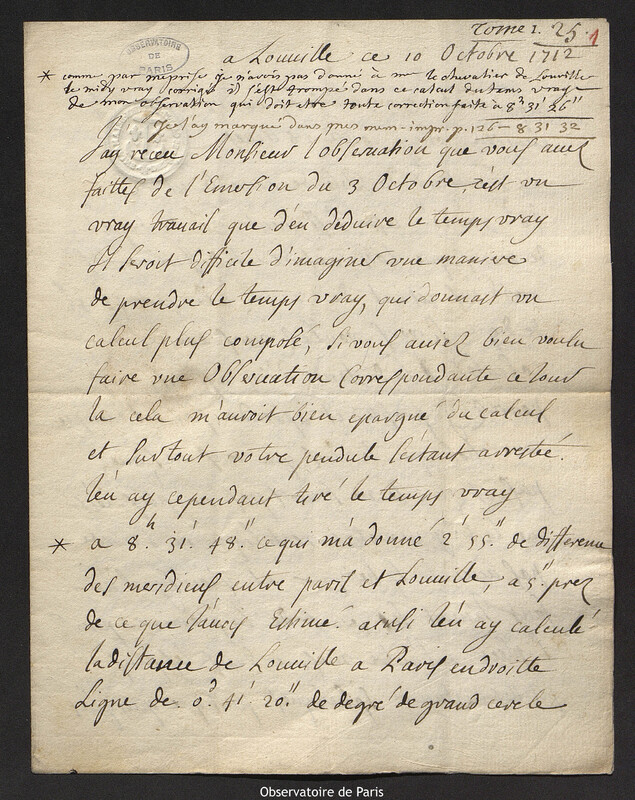 Tome 1. 25. 1
OBSERVATOIRE
DE
PARIS
a Louville ce 10 Octobre 1712
* comme par meprise je n'avois pas donné a mr le chevalier de Louville
le midy vray corrigé il s'est trompé dans ce calcul du tems vray
de mon observation qui doit etre toute correction faite a 8h 31' 26"
Je l'ay marqué dans mes mem. impr. p. 126 — 8 31 32
J'ay receu Monsieur l'observation que vous avez
faittes de l'Emersion du 3 Octobre, c'est un
vray travail que d'en deduire le temps vray
Il seroit difficile d'imaginer une maniere
de prendre le temps vray, qui donnast un
calcul plus composé, si vous aviez bien voulu
faire une Observation Correspondante ce Jour
la cela m'auroit bien epargné du calcul
et surtout votre pendule s'etant arrestée.
J'en ay cependant tiré le temps vray
* a 8.h 31.' 48." ce qui m'a donné 2' 55." de difference
des meridiens entre paris et Louville, a 5." prez
de ce que J'avois Estimé. ainsi J'en ay calculé
la distance de Louville a Paris en droitte
Ligne de 0.d 41' 20." de degré de grand cercle
Observatoire de Paris